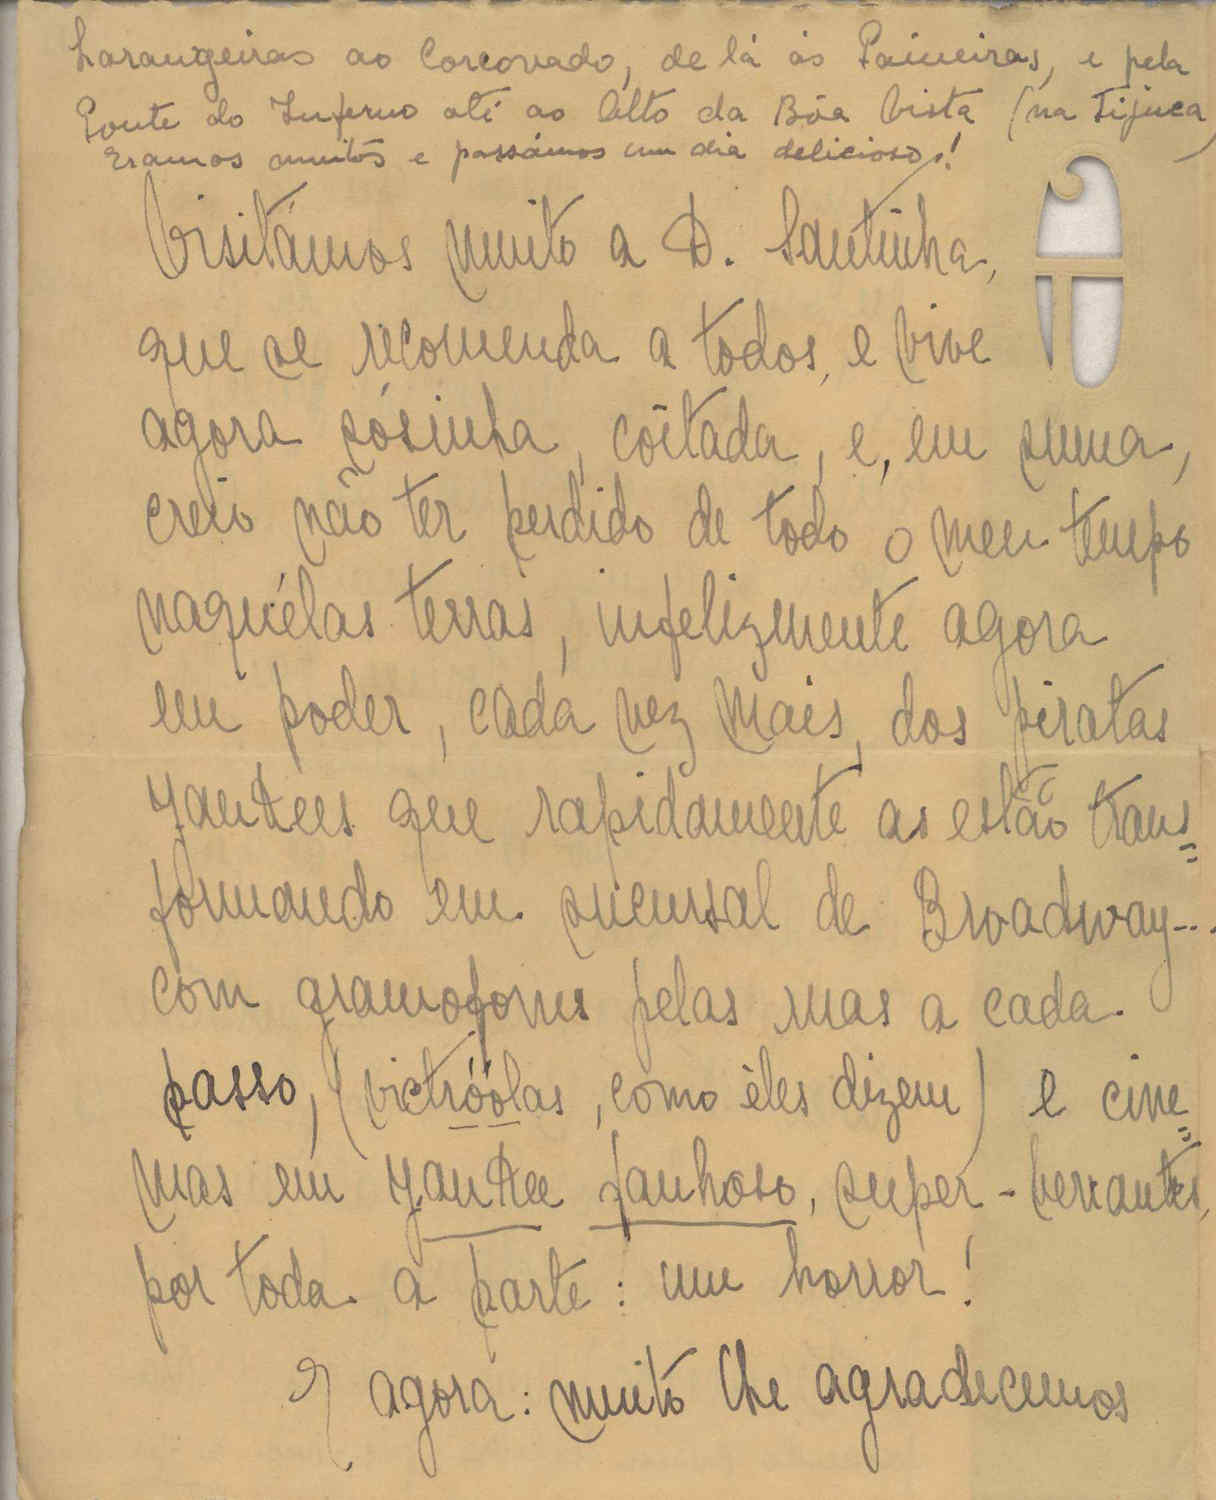 Larangeiras ao Corcovado, de lá ás Paineiras, e pela
Ponte do Inferno até ao Alto da Bôa Vista (na Tijuca)
Eramos muitos e passámos um dia delicioso!
Visitámos muito a D. Santinha,
que se recomenda a todos, e vive
agora sósinha, côitada, e, em suma,
creio não ter perdido de todo o meu tempo
naquélas terras, infelizmente agora
em poder, cada vez mais, dos piratas
yankees que rapidamente as estão trans=
formando em sucursal de Broadway...
com gramofones pelas ruas a cada
passo, (victróólas, como êles dizem) e cine=
mas em yankee fanhoso, super-berrantes,
por toda a parte: um horror!
E agora: muito lhe agradecemos